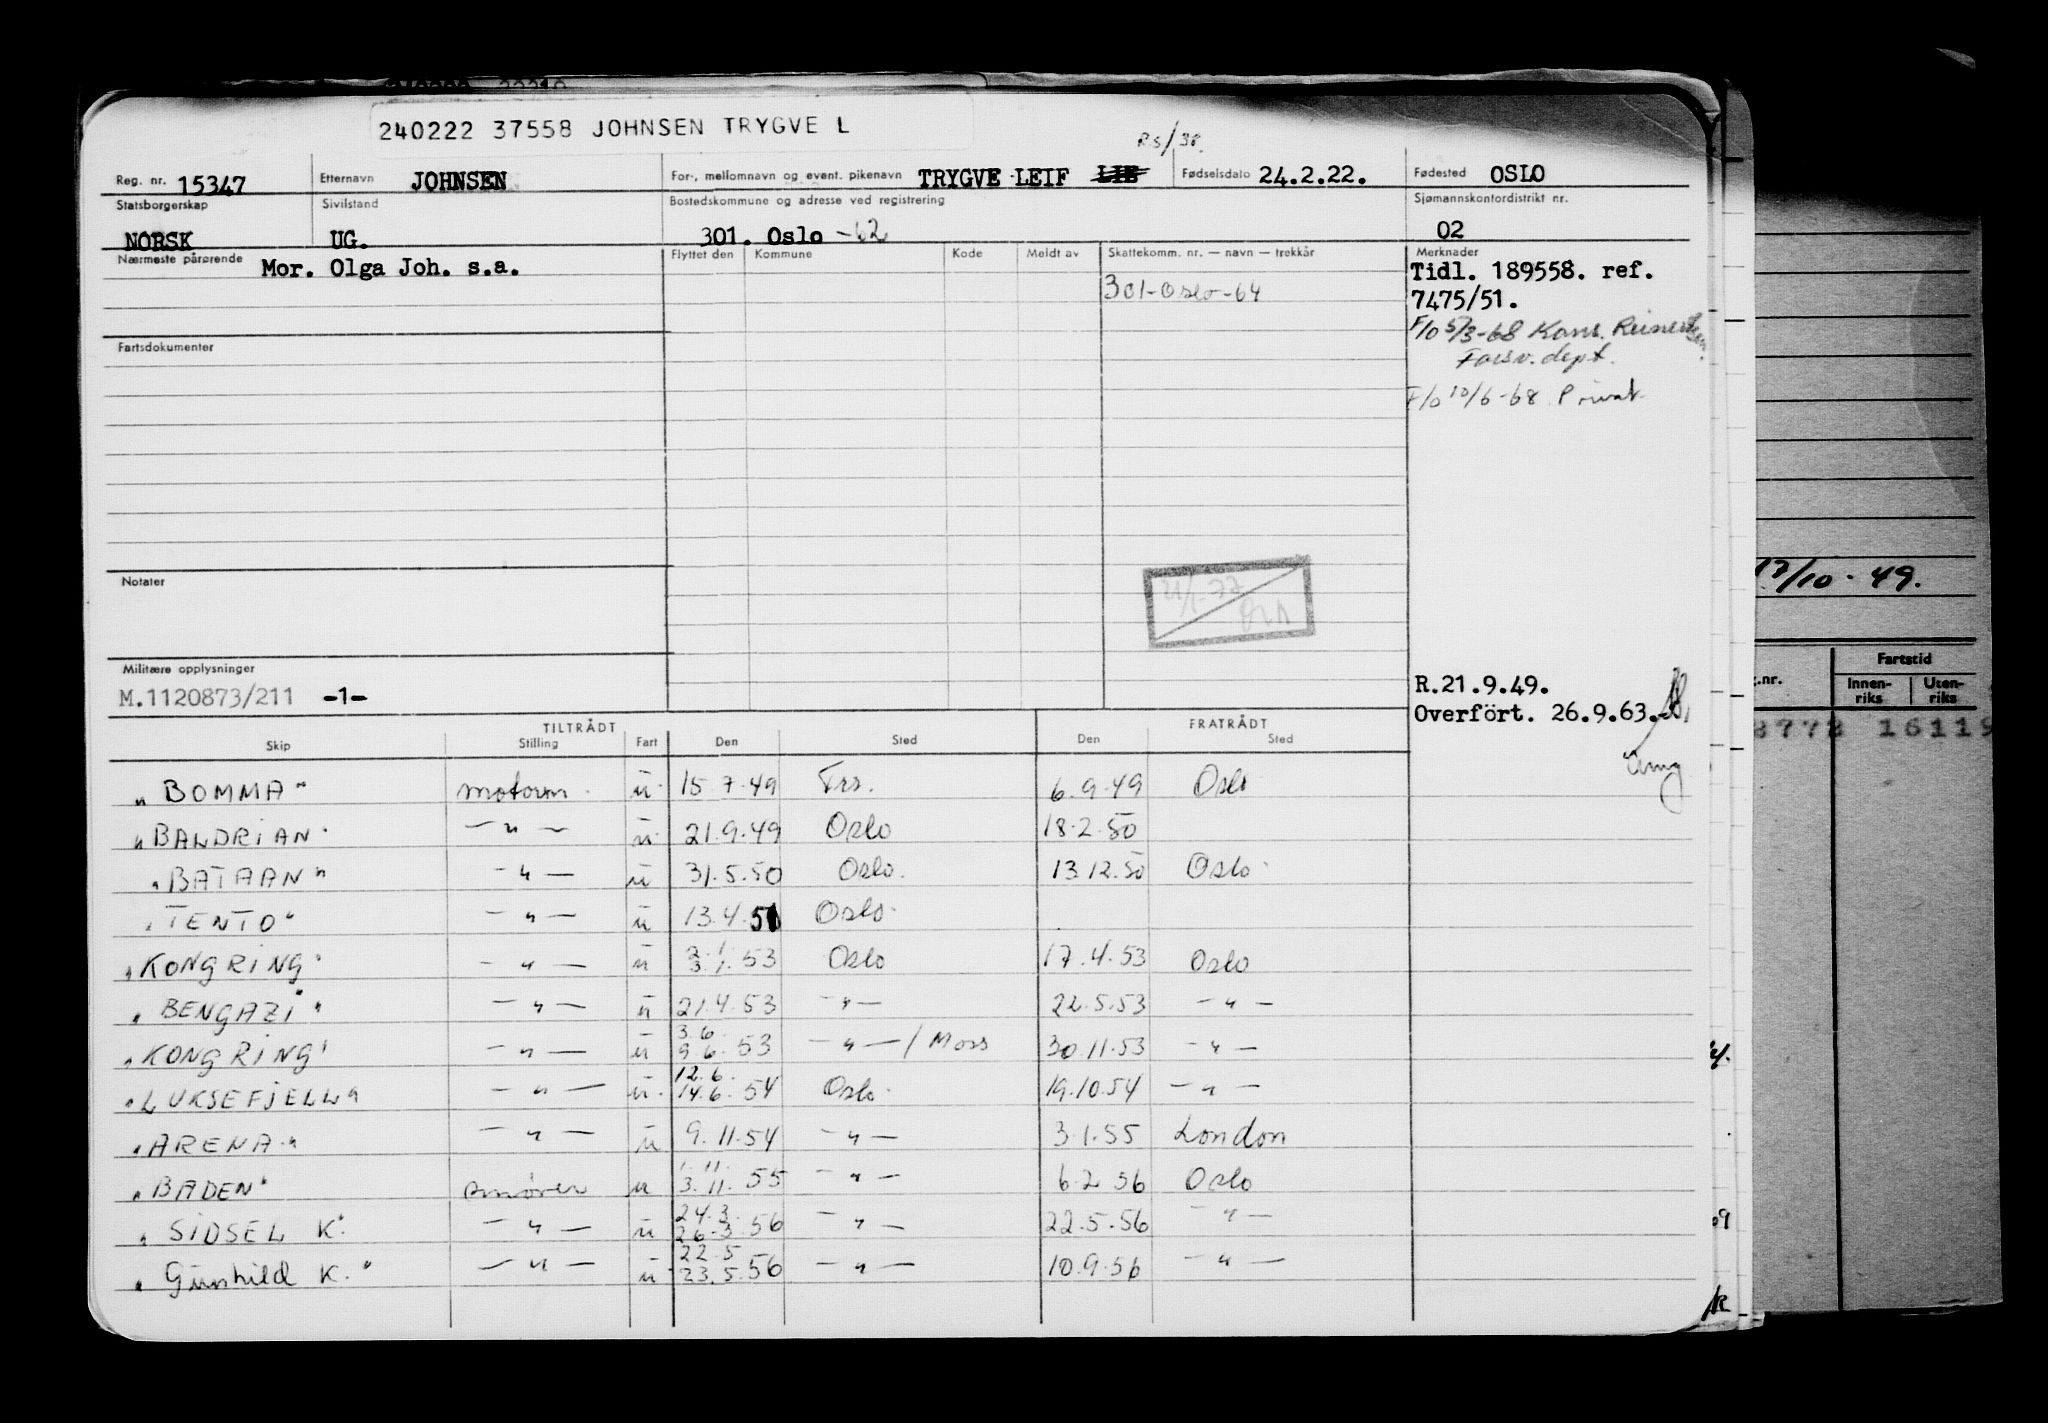 240222 37558 JOHNSEN TRYGVE L
Reg. nr. 15347 Etternavn JOHNSEN For-, mellomnavn og event. pikenavn TRYGVE LEIF Fødselsdato 24.2.22. Fødested OSLO
Statsborgerskap Sivilstand Bostedskommune og adresse ved registrering Sjømannskontordistrikt nr.
NORSK UG. 301. Oslo -62 02
Nærmeste pårørende Mor. Olga Joh. s.a. Flyttet den Kommune Kode Meldt av Skattekomm. nr. — navn — trekkår Merknader
301-Oslo-64 Tidl. 189558. ref.
7475/51.
F/o 5/3-68 Kons.
Forsv. dept.
F/o 10/6-68 Privat
Fartsdokumenter
Notater
Militære opplysninger
M.1120873/211 -1-
R.21.9.49.
Overfört. 26.9.63.
TILTRÅDT FRATRÅDT
Skip Stilling Fart Den Sted Den Sted
"BOMMA" motorm. u. 15.7.49 Trs. 6.9.49 Oslo
"BALDRIAN" — " — u. 21.9.49 Oslo 18.2.50
"BATAAN" — " — u 31.5.50 Oslo. 13.12.50 Oslo
"TENTO" — " — u 13.4.51 Oslo.
"KONGRING" — " — u 2.1. 3.1.53 Oslo 17.4.53 Oslo
"BENGAZI" — " — u 21.4.53 — " — 22.5.53 — " —
"KONGRING" — " — u 3.6. 9.6.53 — " — / Moss 30.11.53 — " —
"LUKSEFJELL" — " — u. 12.6. 14.6.54 Oslo 19.10.54 — " —
"ARENA" — " — u 9.11.54 — " — 3.1.55 London
"BADEN" smører u 1.11. 3.11.55 — " — 6.2.56 Oslo
"SIDSEL K." — " — u 24.3. 26.3.56 — " — 22.5.56 — " —
"Gunhild K." — " — u 22.5 23.5.56 — " — 10.9.56 — " —
17/10-49.
g.nr. Fartstid
Innen-riks Uten-riks
16119